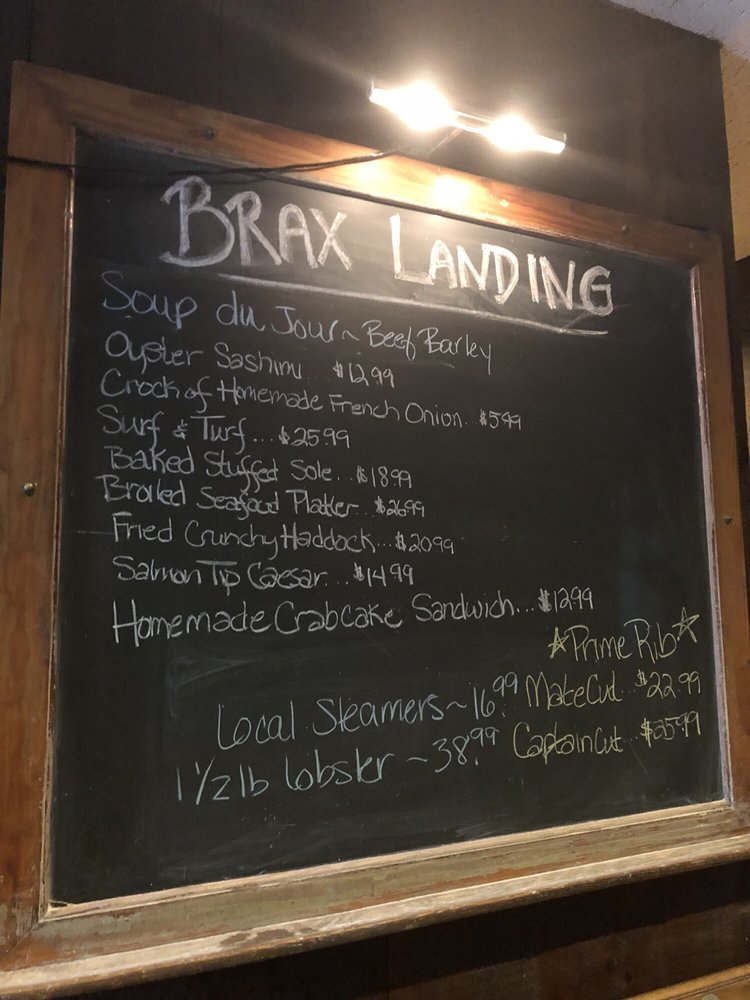 BRAX LANDING
Soup du Jour ~ Beef Barley
Oyster Sashimi... $12.99
Crock of Homemade French Onion... $5.99
Surf & Turf... $25.99
Baked Stuffed Sole... $18.99
Broiled Seafood Platter... $26.99
Fried Crunchy Haddock... $20.99
Salmon Tip Caesar... $14.99
Homemade Crabcake Sandwich... $12.99
☆Prime Rib☆
Mate Cut... $22.99
Captain Cut... $25.99
Local Steamers ~ 16.99
1 1/2 lb lobster ~ 38.99